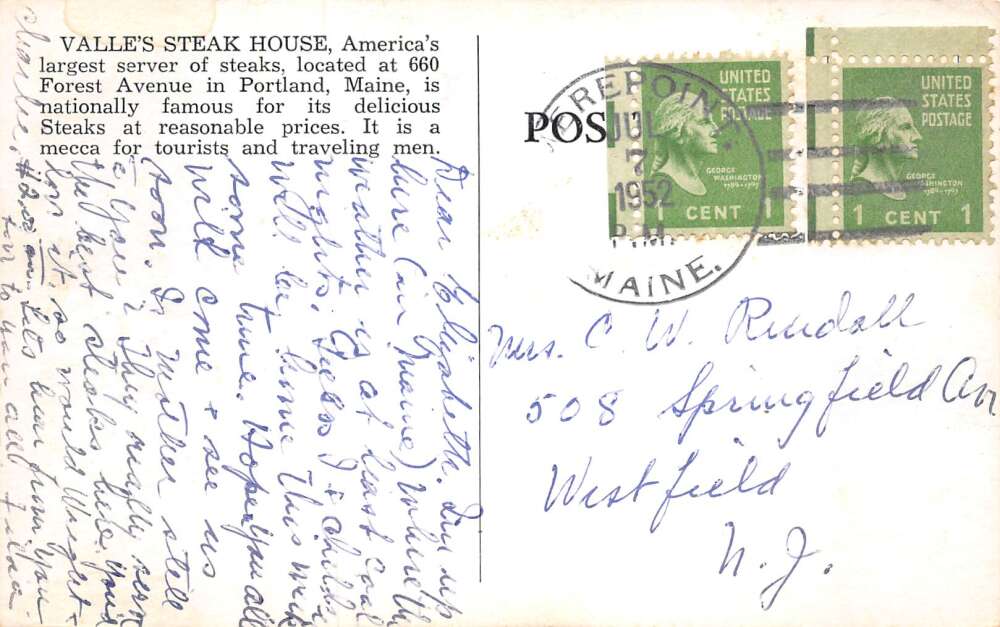 VALLE'S STEAK HOUSE, America's
largest server of steaks, located at 660
Forest Avenue in Portland, Maine, is
nationally famous for its delicious
Steaks at reasonable prices. It is a
mecca for tourists and traveling men.
POS
MEREPOINT.
JUL
7
1952
P.M.
MAINE.
UNITED
STATES
POSTAGE
GEORGE
WASHINGTON
1789-1797
1 CENT 1
UNITED
STATES
POSTAGE
GEORGE
WASHINGTON
1789-1797
1 CENT 1
Mrs. C. W. Rindall
508 Springfield Av
Westfield
N. J.
Dear Elizabeth. I'm up
here (in Maine) where the
weather is at least cool
nights. Guess I & childn
will be home this week
some time. Hope you all
will come & see us
soon. Is Mother still
c you? They really serve
the best steaks here. You'd
for it, so would Wright &
Charlie, #2.00 Let's hear from you
to you all